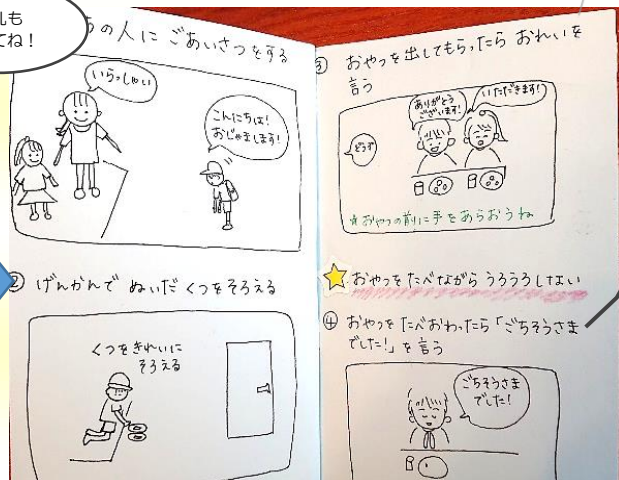 れも
てね！
ちの人に ごあいさつをする
いらっしゃい
こんにちは！
おじゃまします！
② げんかんで ぬいだ くつを そろえる
くつをきれいに
そろえる
③ おやつを出してもらったら おれいを
言う
どうぞ
ありがとう
ございます！
いただきます！
☆おやつの前に手をあらおうね
おやつをたべながら うろうろしない
④ おやつをたべおわったら「ごちそうさま
でした！」を言う
ごちそうさま
でした！